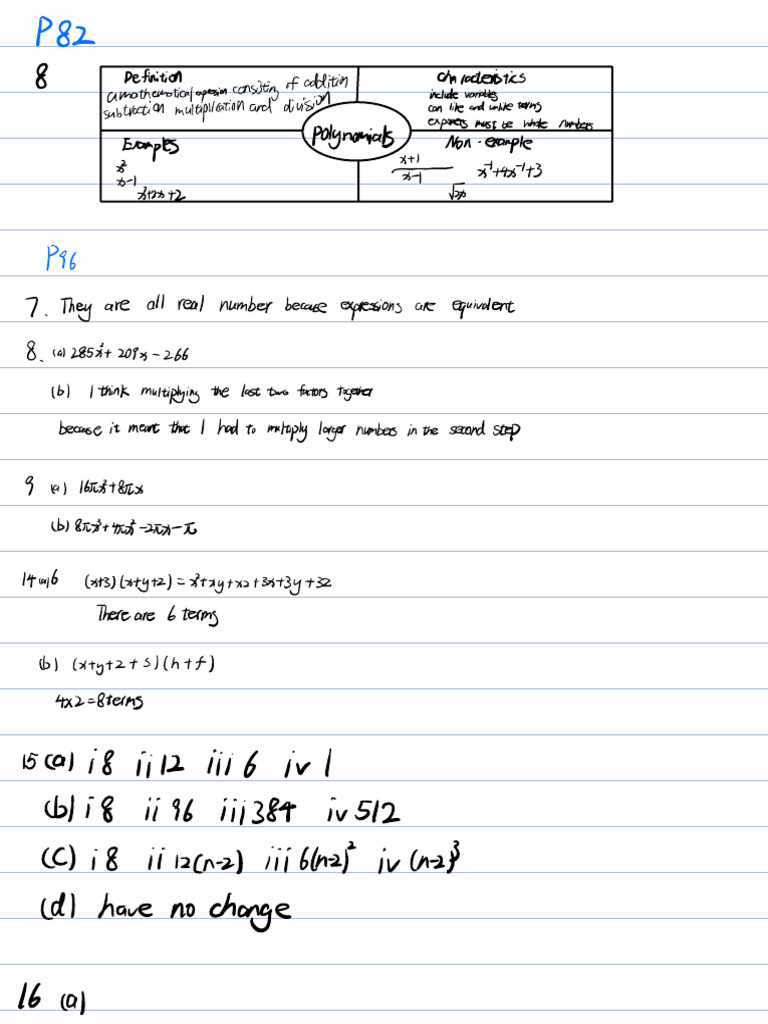 P82
8
Definition
a mathematical expression consisting of addition
subtraction multiplication and division
Characteristics
include variables
can like and unlike terms
exponents must be whole numbers
Polynomials
Examples
x²
x-1
x³+2x+2
Non-example
x+1
x-1
x⁻¹+4x⁻¹+3
√2x
P96
7. They are all real number because expressions are equivalent
8. (a) 285x²+209x-266
(b) I think multiplying the last two factors together
because it meant that I had to multiply larger numbers in the second step
9 (a) 16πx²+8πx
(b) 8πx³+4πx²-2πx-π
14 (a) 6 (x+3)(x+y+z)=x²+xy+xz+3x+3y+3z
There are 6 terms
(b) (x+y+z+s)(h+f)
4x2=8terms
15 (a) i 8 ii 12 iii 6 iv 1
(b) i 8 ii 96 iii 384 iv 512
(c) i 8 ii 12(n-2) iii 6(n-2)² iv (n-2)³
(d) have no change
16 (a)